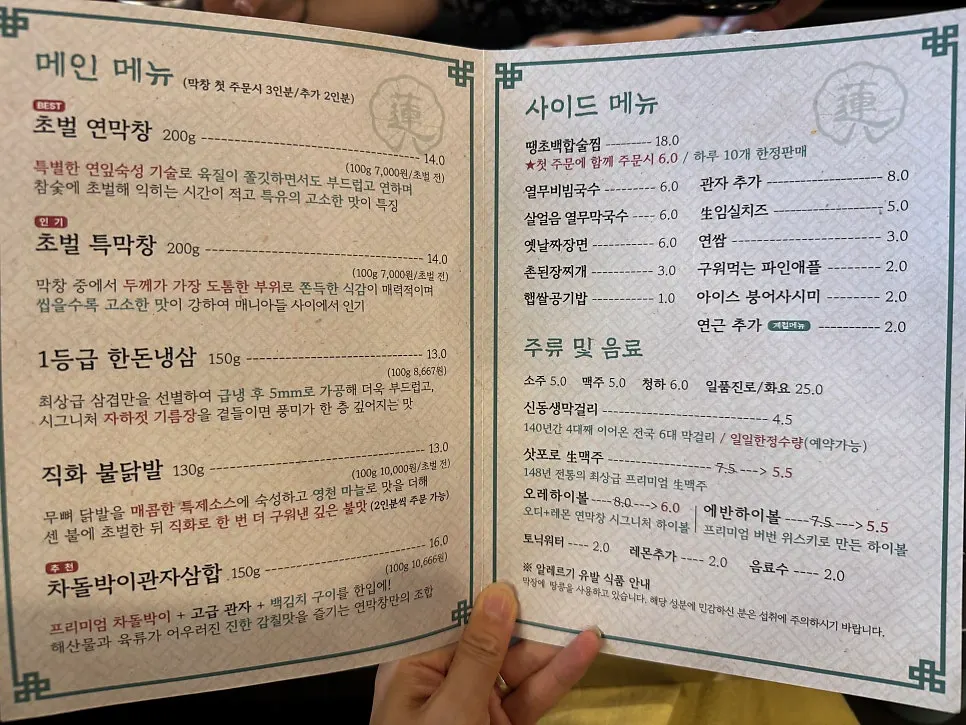 메인 메뉴 (막창 첫 주문시 3인분/추가 2인분)
BEST
초벌 연막창 200g 14.0
(100g 7,000원/초벌 전)
특별한 연잎숙성 기술로 육질이 쫄깃하면서도 부드럽고 연하며
참숯에 초벌해 익히는 시간이 적고 특유의 고소한 맛이 특징
인기
초벌 특막창 200g 14.0
(100g 7,000원/초벌 전)
막창 중에서 두께가 가장 도톰한 부위로 쫀득한 식감이 매력적이며
씹을수록 고소한 맛이 강하여 매니아들 사이에서 인기
1등급 한돈냉삼 150g 13.0
(100g 8,667원)
최상급 삼겹만을 선별하여 급냉 후 5mm로 가공해 더욱 부드럽고,
시그니처 자하젓 기름장을 곁들이면 풍미가 한 층 깊어지는 맛
직화 불닭발 130g 13.0
(100g 10,000원/초벌 전)
무뼈 닭발을 매콤한 특제소스에 숙성하고 영천 마늘로 맛을 더해
센 불에 초벌한 뒤 직화로 한 번 더 구워낸 깊은 불맛 (2인분씩 주문 가능)
추천
차돌박이관자삼합 150g 16.0
(100g 10,666원)
프리미엄 차돌박이 + 고급 관자 + 백김치 구이를 한입에!
해산물과 육류가 어우러진 진한 감칠맛을 즐기는 연막창만의 조합
蓮
사이드 메뉴
땡초백합술찜 18.0
★첫 주문에 함께 주문시 6.0 / 하루 10개 한정판매
열무비빔국수 6.0
살얼음 열무막국수 6.0
옛날짜장면 6.0
촌된장찌개 3.0
햅쌀공기밥 1.0
관자 추가 8.0
生임실치즈 5.0
연쌈 3.0
구워먹는 파인애플 2.0
아이스 붕어사시미 2.0
연근 추가 계절메뉴 2.0
주류 및 음료
소주 5.0 맥주 5.0 청하 6.0 일품진로/화요 25.0
신동생막걸리 4.5
140년간 4대째 이어온 전국 6대 막걸리 / 일일한정수량(예약가능)
삿포로 生맥주 7.5 ---> 5.5
148년 전통의 최상급 프리미엄 生맥주
오레하이볼 8.0 ---> 6.0
오디+레몬 연막창 시그니처 하이볼
에반하이볼 7.5 ---> 5.5
프리미엄 버번 위스키로 만든 하이볼
토닉워터 2.0 레몬추가 2.0 음료수 2.0
※ 알레르기 유발 식품 안내
막장에 땅콩을 사용하고 있습니다. 해당 성분에 민감하신 분은 섭취에 주의하시기 바랍니다.
蓮